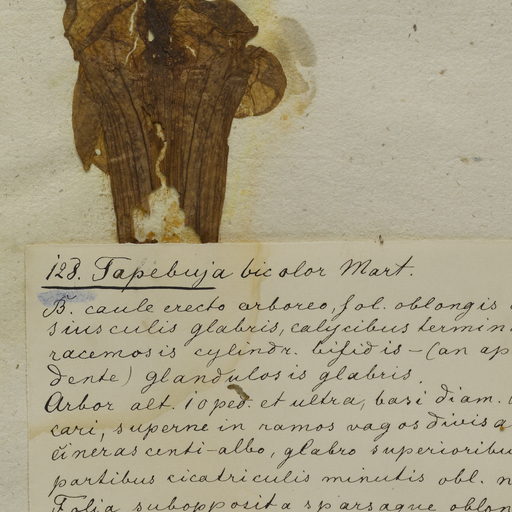 128. Tapebuja bicolor Mart.
B. caule erecto arboreo, fol. oblongis
siusculis glabris, calycibus termin
racemosis cylindr. bifidis – (an ap
dente) glandulosis glabris.
Arbor alt. 10 ped. et ultra, basi diam.
cari, superne in ramos vagos divisa
cinerascenti-albo, glabro superioribu
partibus cicatriculis minutis obl. n
Folia subopposita sparsaque oblon